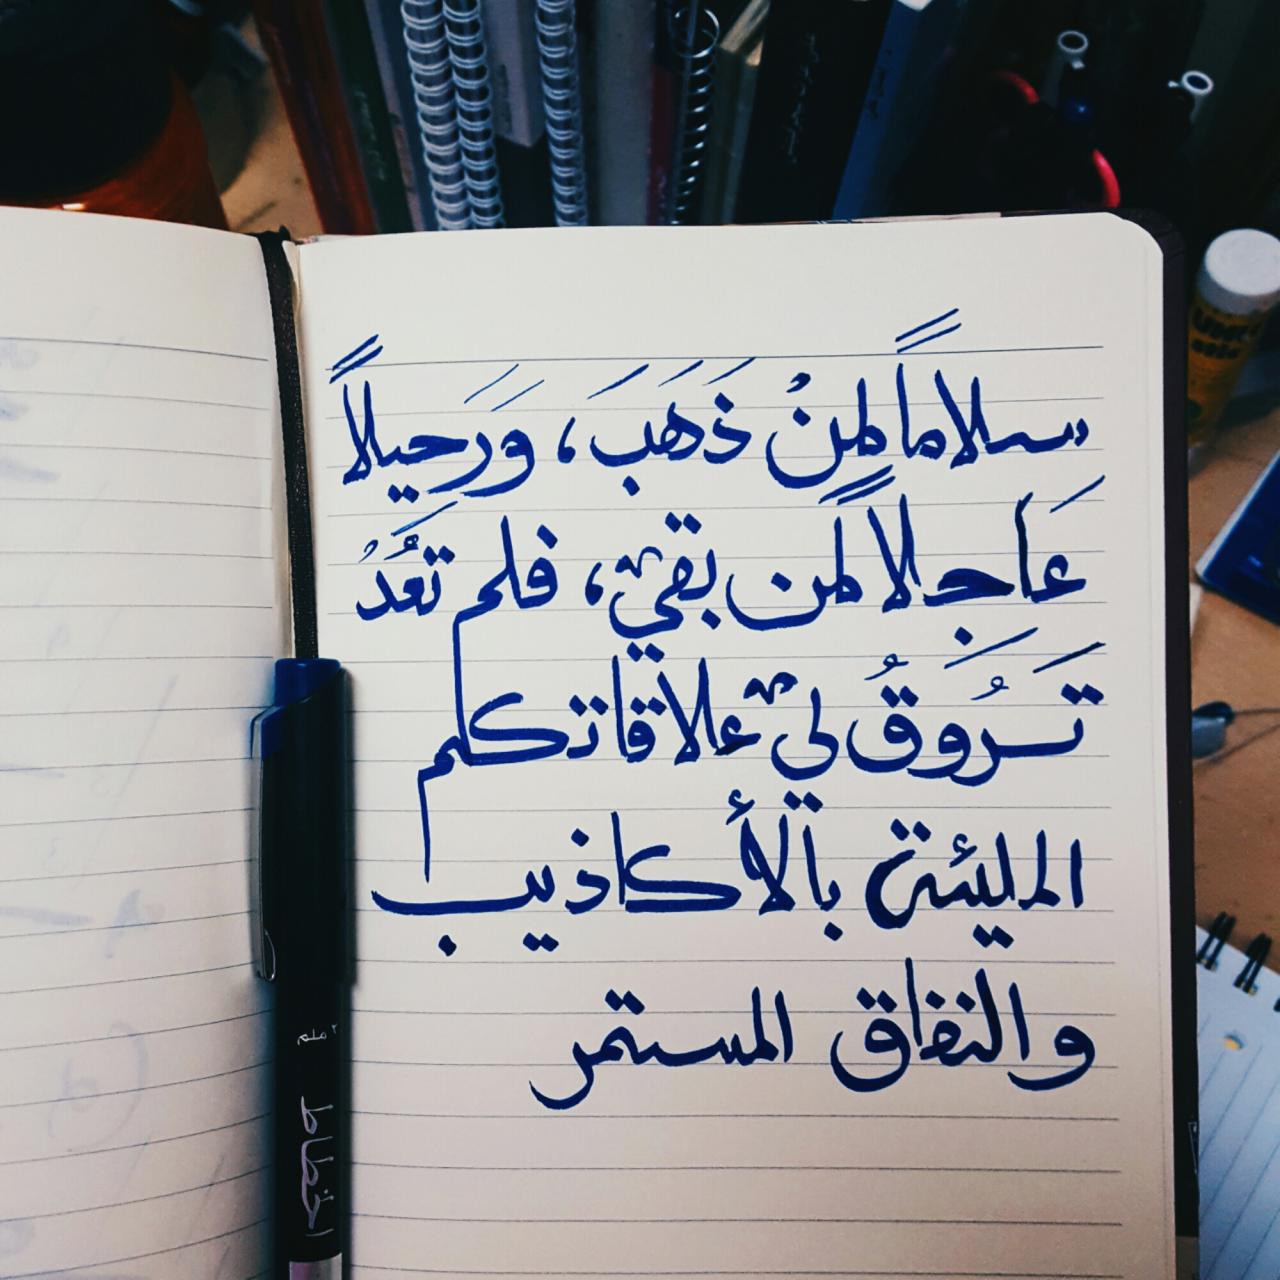 سلاماً لمنْ ذَهَبَ، وَرَحيلاً
عَاجلاً لمن بقي، فلم تَعُدُ
تَروُقُ لي علاقاتكم
المليئة بالأكاذيب
والنفاق المستمر
قلم
الخطاط
UHU
stic